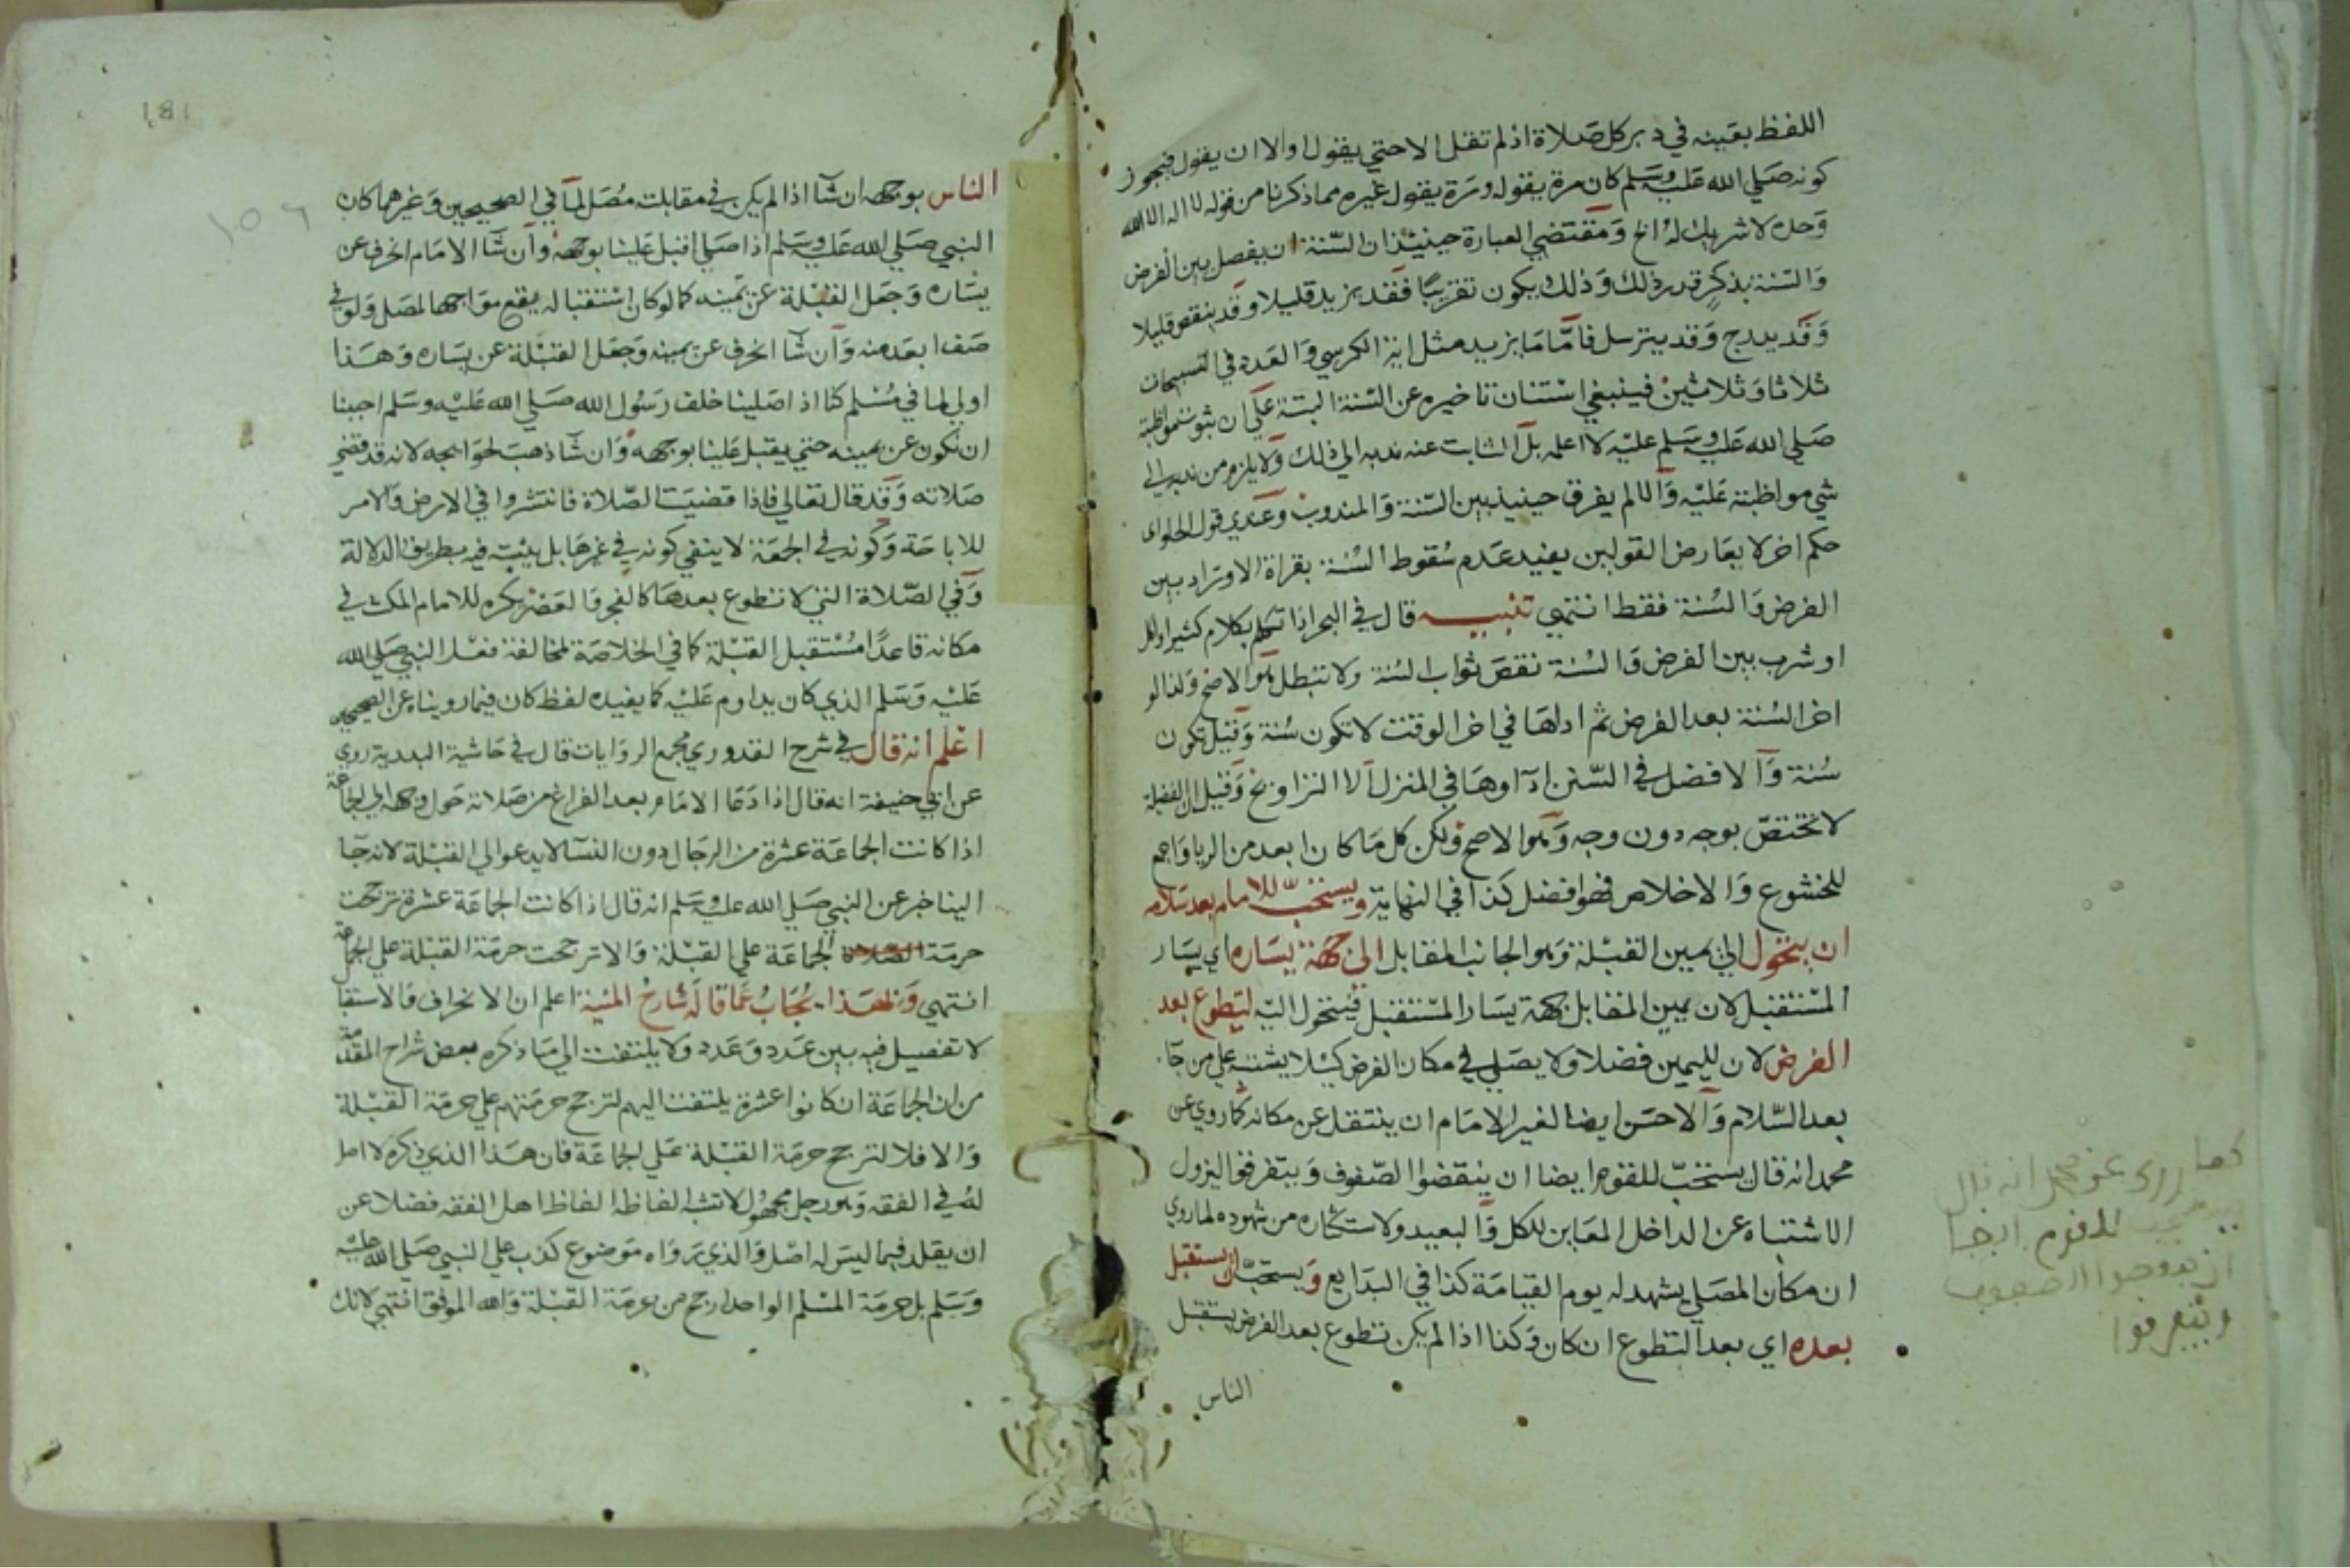 اللفظ بعينه في دبر كل صلاة اذ لم تقل الا حتي يقول او الا ان يقول فيجوز
كونه صلي الله عليه وسلم كان مرة يقوله ومرة يقول غيره مما ذكرنا من قوله لا اله الا الله
وحده لا شريك له الخ ومقتضي العبارة حينئذ ان السنة ان يفصل بين الفرض
والسنة بذكر قدر ذلك وذلك يكون تقريبا فقد يزيد قليلا وقد ينقص قليلا
وقد يدرج وقد يترسل فاما ما يزيد مثل اية الكرسي والعدد في التسبيحات
ثلاثا وثلاثين فينبغي استنان تاخيره عن السنة البتة علي ان ثبوت مواظبته
صلي الله عليه وسلم عليه لا اعلمه بل الثابت عنه ندبه الي ذلك ولا يلزم من ندبه الي
شي مواظبته عليه والا لم يفرق حينئذ بين السنة والمندوب وعندي قول الحلواي
حكم اخر لا يعارض القولين يفيد عدم سقوط السنة بقراة الاوراد بين
الفرض والسنة فقط انتهي تنبيه قال في البحر اذا تكلم بكلام كثير او اكل
او شرب بين الفرض والسنة نقص ثواب السنة ولا تبطل وهو الاصح ولذا لو
اخر السنة بعد الفرض ثم اداها في اخر الوقت لا تكون سنة وقيل تكون
سنة والافضل في السنن اداوها في المنزل الا التراويح وقيل ان الفضيلة
لا تختص بوجه دون وجه وهو الاصح ولكن كل ما كان ابعد من الريا واجمع
للخشوع والاخلاص فهو افضل كذا في النهاية ويستحب للامام بعد سلامه
ان يتحول الي يمين القبلة وهو الجانب المقابل الي جهة يساره اي يسار
المستقبل لان يمين المقابل جهة يسار المستقبل فيتحول اليه ليتطوع بعد
الفرض لان لليمين فضلا ولا يصلي في مكان الفرض كيلا يشتبه علي من جا
بعد السلام والاحسن ايضا لغير الامام ان ينتقل عن مكانه كما روي عن
محمد انه قال يستحب للقوم ايضا ان ينقضوا الصفوف ويتفرقوا ليزول
الاشتباه عن الداخل المعاين للكل والبعيد ولاستكثاره من شهوده لما روي
ان مكان المصلي يشهد له يوم القيامة كذا في البدايع ويستحب ان يستقبل
بعده اي بعد التطوع ان كان وكذا اذا لم يكن تطوع بعد الفرض يستقبل
الناس
كما روي عن محمد انه قال
يستحب للقوم ايضا
ان
ويتفرقوا
181
١٠٥٦
الناس بوجهه ان شا اذا لم يكن في مقابلته مصل لما في الصحيحين وغيرهما كان
النبي صلي الله عليه وسلم اذا صلي اقبل علينا بوجهه وان شا الامام انحرف عن
يساره وجعل القبلة عن يمينه كما لو كان استقباله يقع مواجها لمصل ولو في
صف ابعد منه وان شا انحرف عن يمينه وجعل القبلة عن يساره وهذا
اولي لما في مسلم كنا اذا صلينا خلف رسول الله صلي الله عليه وسلم احببنا
ان نكون عن يمينه حتي يقبل علينا بوجهه وان شا ذهب لحوايجه لانه قد قضي
صلاته وقد قال تعالي فاذا قضيت الصلاة فانتشروا في الارض والامر
للاباحة وكونه في الجمعة لا ينفي كونه في غيرها بل يثبت فيه بطريق الدلالة
وفي الصلاة التي لا تطوع بعدها كالفجر والعصر يكره للامام المكث في
مكانه قاعدا مستقبل القبلة كما في الخلاصة لمخالفة فعل النبي صلي الله
عليه وسلم الذي كان يداوم عليه كما يفيده لفظ كان فيما رويناه عن الصحيحين
اعلم انه قال في شرح القدوري مجمع الروايات قال في حاشية البدرية روي
عن ابي حنيفة انه قال اذا دعا الامام بعد الفراغ من صلاته حول وجهه الي الجماعة
اذا كانت الجماعة عشرة من الرجال دون النسا لا يدعو الي القبلة لانه جا
الينا خبر عن النبي صلي الله عليه وسلم انه قال اذا كانت الجماعة عشرة ترجحت
حرمة الجماعة علي القبلة والا ترجحت حرمة القبلة علي الجماعة
انتهي وبهذا يجاب عما قاله شارح المنية اعلم ان الانحراف والاستقبا
لا تفصيل فيه بين عدد وعدد ولا يلتفت الي ما ذكره بعض شراح المقدمة
من ان الجماعة ان كانوا عشرة يلتفت اليهم لترجح حرمتهم علي حرمة القبلة
والا فلا لترجح حرمة القبلة علي الجماعة فان هذا الذي ذكره لا اصل
له في الفقه وهو رجل مجهول لا تشبه الفاظه الفاظ اهل الفقه فضلا عن
ان يقلد فيما ليس له اصل والذي رواه موضوع كذب علي النبي صلي الله عليه
وسلم بل حرمة المسلم الواحد ارجح من حرمة القبلة والله الموفق انتهي لانك